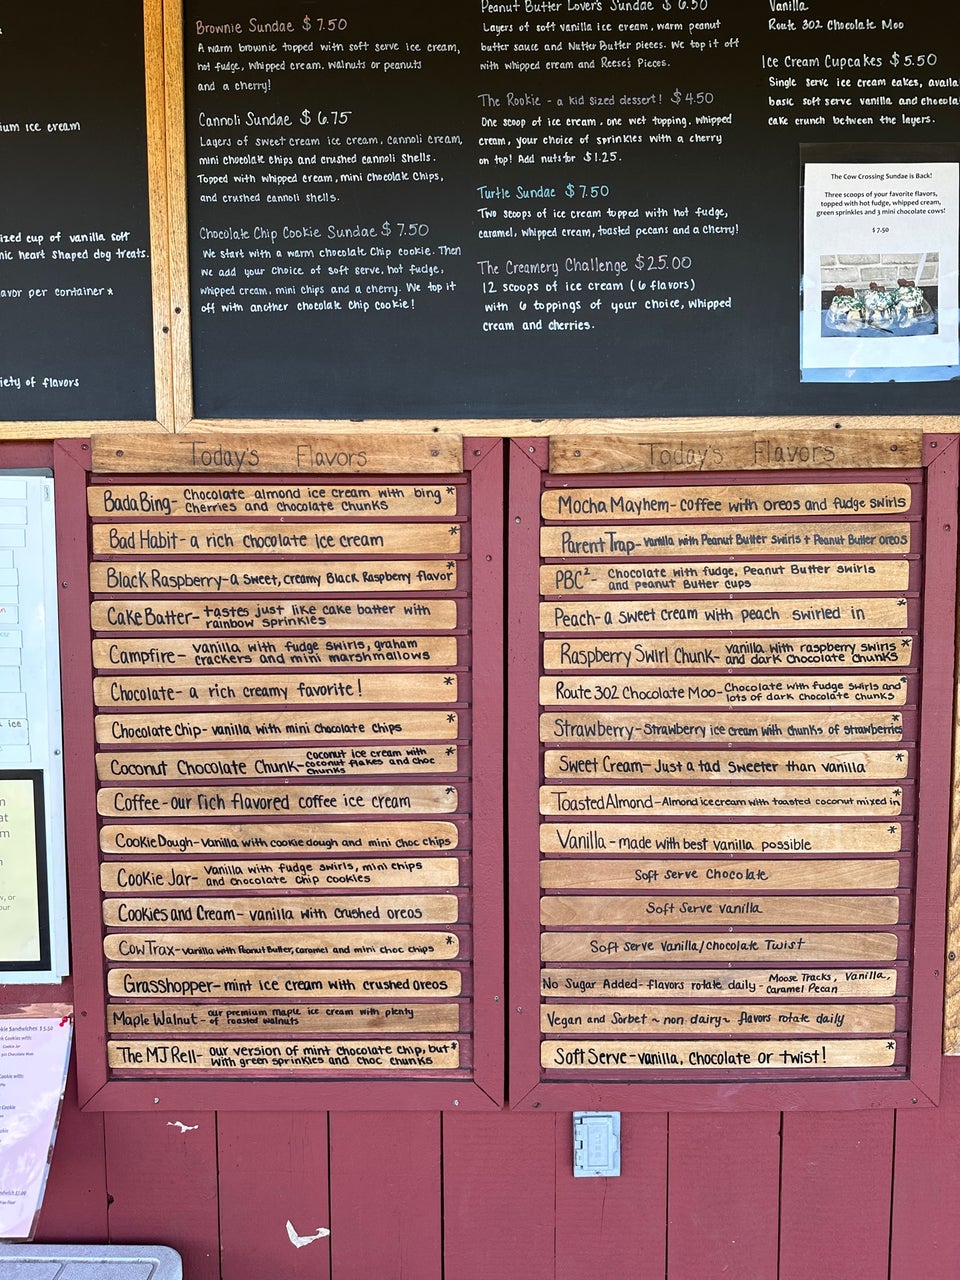 ium ice cream
ized cup of vanilla soft
nic heart shaped dog treats.
avor per container*
iety of flavors
Brownie Sundae $7.50
A warm brownie topped with soft serve ice cream,
hot fudge, whipped cream. walnuts or peanuts
and a cherry!
Cannoli Sundae $6.75
Layers of sweet cream ice cream, cannoli cream,
mini chocolate chips and crushed cannoli shells.
Topped with whipped cream, mini chocolate chips,
and crushed cannoli shells.
Chocolate Chip Cookie Sundae $7.50
We start with a warm chocolate chip cookie. Then
we add your choice of soft serve, hot fudge,
whipped cream, mini chips and a cherry. We top it
off with another chocolate chip cookie!
Peanut Butter Lover's Sundae $6.50
Layers of soft vanilla ice cream, warm peanut
butter sauce and Nutter Butter pieces. We top it off
with whipped cream and Reese's Pieces.
The Rookie - a kid sized dessert! $4.50
One scoop of ice cream, one wet topping, whipped
cream, your choice of sprinkles with a cherry
on top! Add nuts for $1.25.
Turtle Sundae $7.50
Two scoops of ice cream topped with hot fudge,
caramel, whipped cream, toasted pecans and a cherry!
The Creamery Challenge $25.00
12 scoops of ice cream (6 flavors)
with 6 toppings of your choice, whipped
cream and cherries.
Vanilla
Route 302 Chocolate Moo
Ice Cream Cupcakes $5.50
Single serve ice cream cakes, availa
basic soft serve vanilla and chocola
cake crunch between the layers.
The Cow Crossing Sundae is Back!
Three scoops of your favorite flavors,
topped with hot fudge, whipped cream,
green sprinkles and 3 mini chocolate cows!
$7.50
Today's Flavors
Bada Bing- Chocolate almond ice cream with bing *
cherries and chocolate chunks
Bad Habit- a rich chocolate ice cream *
Black Raspberry- a sweet, creamy Black Raspberry flavor *
Cake Batter- tastes just like cake batter with
rainbow sprinkles
Campfire- vanilla with fudge swirls, graham
crackers and mini marshmallows
Chocolate- a rich creamy favorite! *
Chocolate chip- vanilla with mini chocolate chips *
Coconut Chocolate Chunk- coconut ice cream with *
coconut flakes and choc
chunks
Coffee- our rich flavored coffee ice cream *
Cookie Dough- vanilla with cookie dough and mini choc chips
Cookie Jar- vanilla with fudge swirls, mini chips
and chocolate chip cookies
Cookies and Cream- vanilla with crushed oreos
Cow Trax- vanilla with Peanut Butter, caramel and mini choc chips *
Grasshopper- mint ice cream with crushed oreos
Maple Walnut- our premium maple ice cream with plenty
of roasted walnuts
The MJ Rell- our version of mint chocolate chip, but *
with green sprinkles and choc chunks
Today's Flavors
Mocha Mayhem- coffee with oreos and fudge swirls
Parent Trap- vanilla with Peanut Butter swirls + Peanut Butter oreos
PBC²- Chocolate with fudge, Peanut Butter swirls
and peanut Butter cups
Peach- a sweet cream with peach swirled in *
Raspberry Swirl Chunk- vanilla with raspberry swirls *
and dark chocolate chunks
Route 302 Chocolate Moo- Chocolate with fudge swirls and *
lots of dark chocolate chunks
Strawberry- Strawberry ice cream with chunks of strawberries *
Sweet Cream- Just a tad sweeter than vanilla *
Toasted Almond- Almond ice cream with toasted coconut mixed in *
Vanilla- made with best vanilla possible *
Soft Serve Chocolate
Soft Serve Vanilla
Soft Serve Vanilla/Chocolate Twist
No Sugar Added- flavors rotate daily- Moose Tracks, Vanilla,
Caramel Pecan
Vegan and Sorbet ~ non dairy ~ flavors rotate daily
Soft Serve- vanilla, chocolate or twist! *